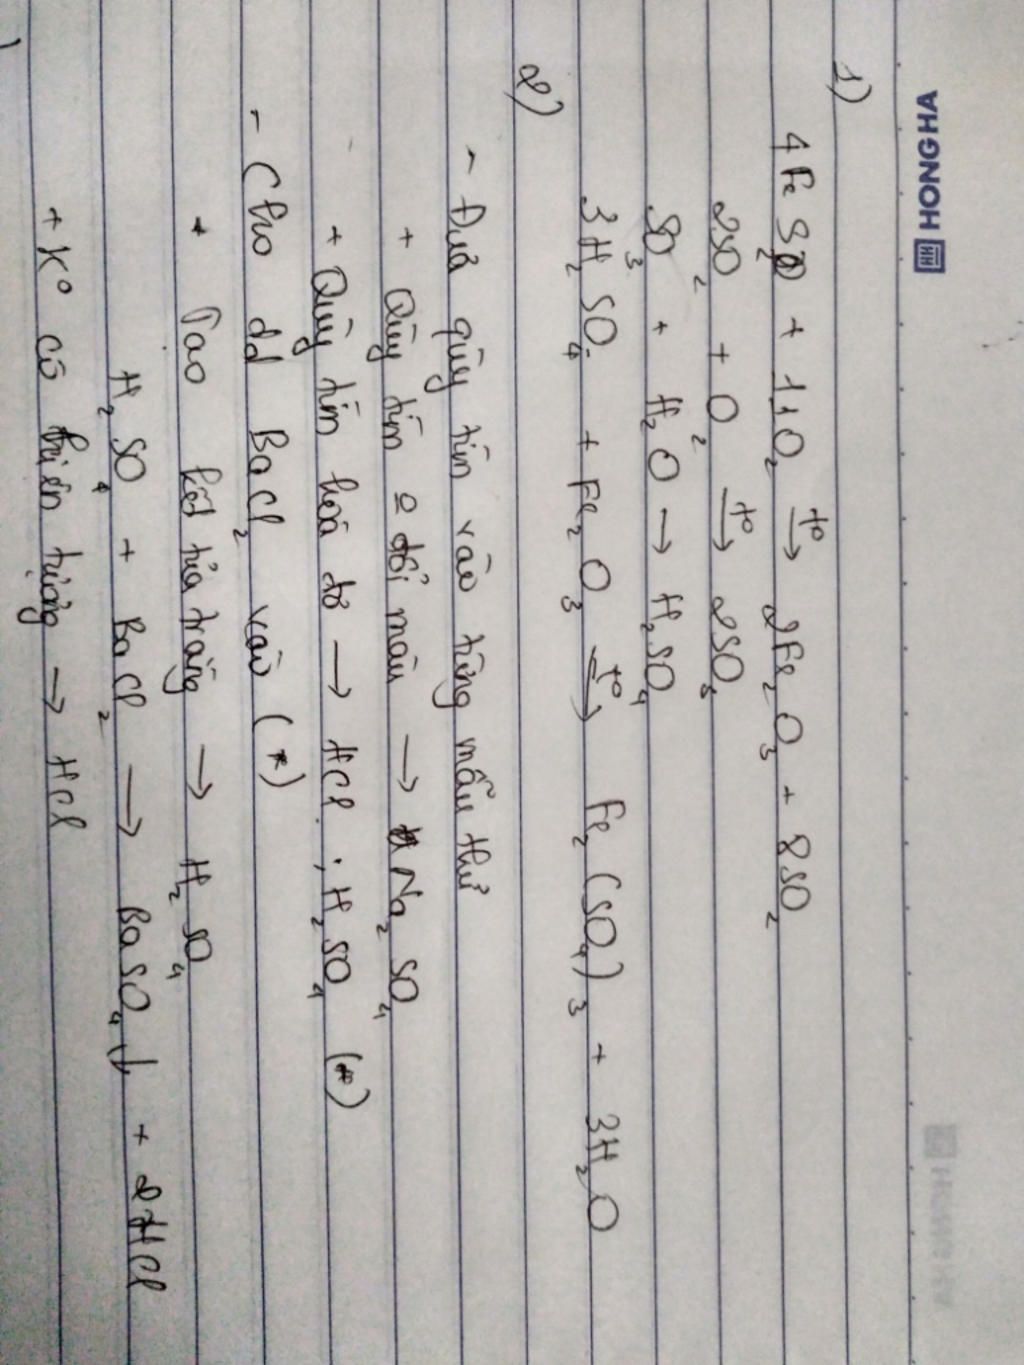 HONG HA
1)
4FeS₂ + 11O₂ →(t°) 2Fe₂O₃ + 8SO₂
2SO₂ + O₂ →(t°) 2SO₃
SO₃ + H₂O → H₂SO₄
3H₂SO₄ + Fe₂O₃ →(t°) Fe₂(SO₄)₃ + 3H₂O
2)
- Đưa qùy tím vào từng mẫu thử
+ Qùy tím đổi màu → Na₂SO₄
+ Qùy tím hoá đỏ → HCl ; H₂SO₄ (*)
- Cho dd BaCl₂ vào (*)
+ Tạo kết tủa trắng → H₂SO₄
H₂SO₄ + BaCl₂ → BaSO₄↓ + 2HCl
+ K° có hiện tượng → HCl